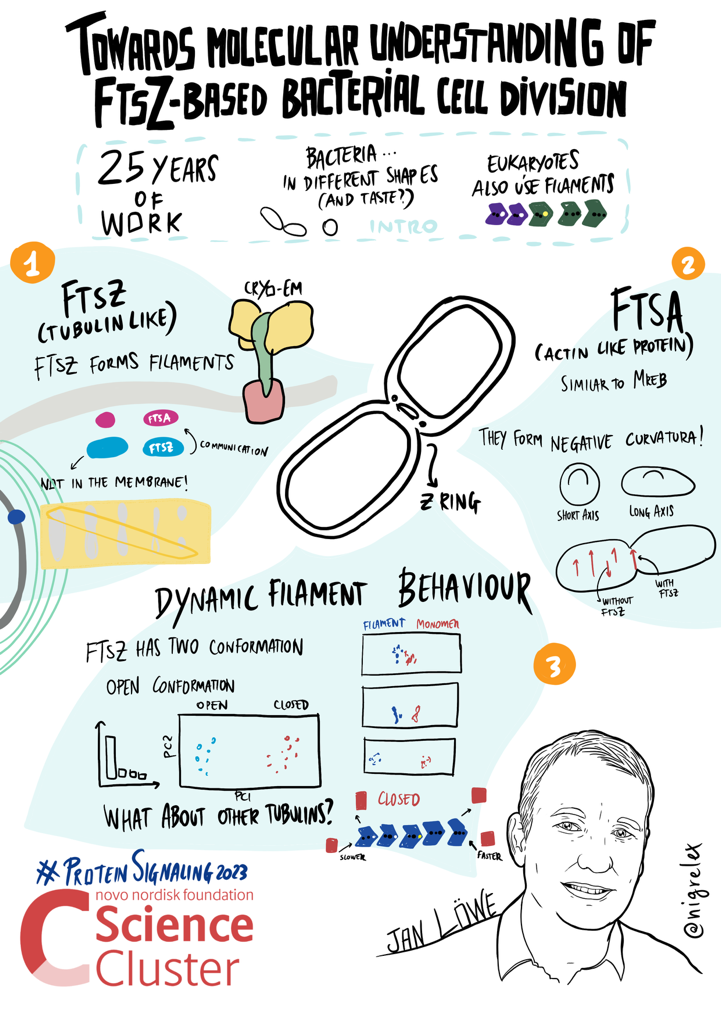 TOWARDS MOLECULAR UNDERSTANDING OF
FTSZ-BASED BACTERIAL CELL DIVISION
25 YEARS
OF
WORK
BACTERIA ...
IN DIFFERENT SHAPES
(AND TASTE?)
INTRO
EUKARYOTES
ALSO USE FILAMENTS
1
FTSZ
(TUBULIN LIKE)
FTSZ FORMS FILAMENTS
CRYO-EM
FTSA
FTSZ
COMMUNICATION
NOT IN THE MEMBRANE!
Z RING
2
FTSA
(ACTIN LIKE PROTEIN)
SIMILAR TO MREB
THEY FORM NEGATIVE CURVATURA!
SHORT AXIS
LONG AXIS
WITHOUT
FTSZ
WITH
FTSZ
DYNAMIC FILAMENT BEHAVIOUR
3
FTSZ HAS TWO CONFORMATION
OPEN CONFORMATION
OPEN CLOSED
PC2
PC1
FILAMENT MONOMER
WHAT ABOUT OTHER TUBULINS?
CLOSED
SLOWER
FASTER
# PROTEIN SIGNALING 2023
novo nordisk foundation
Science
Cluster
JAN LÖWE
@nigrelex